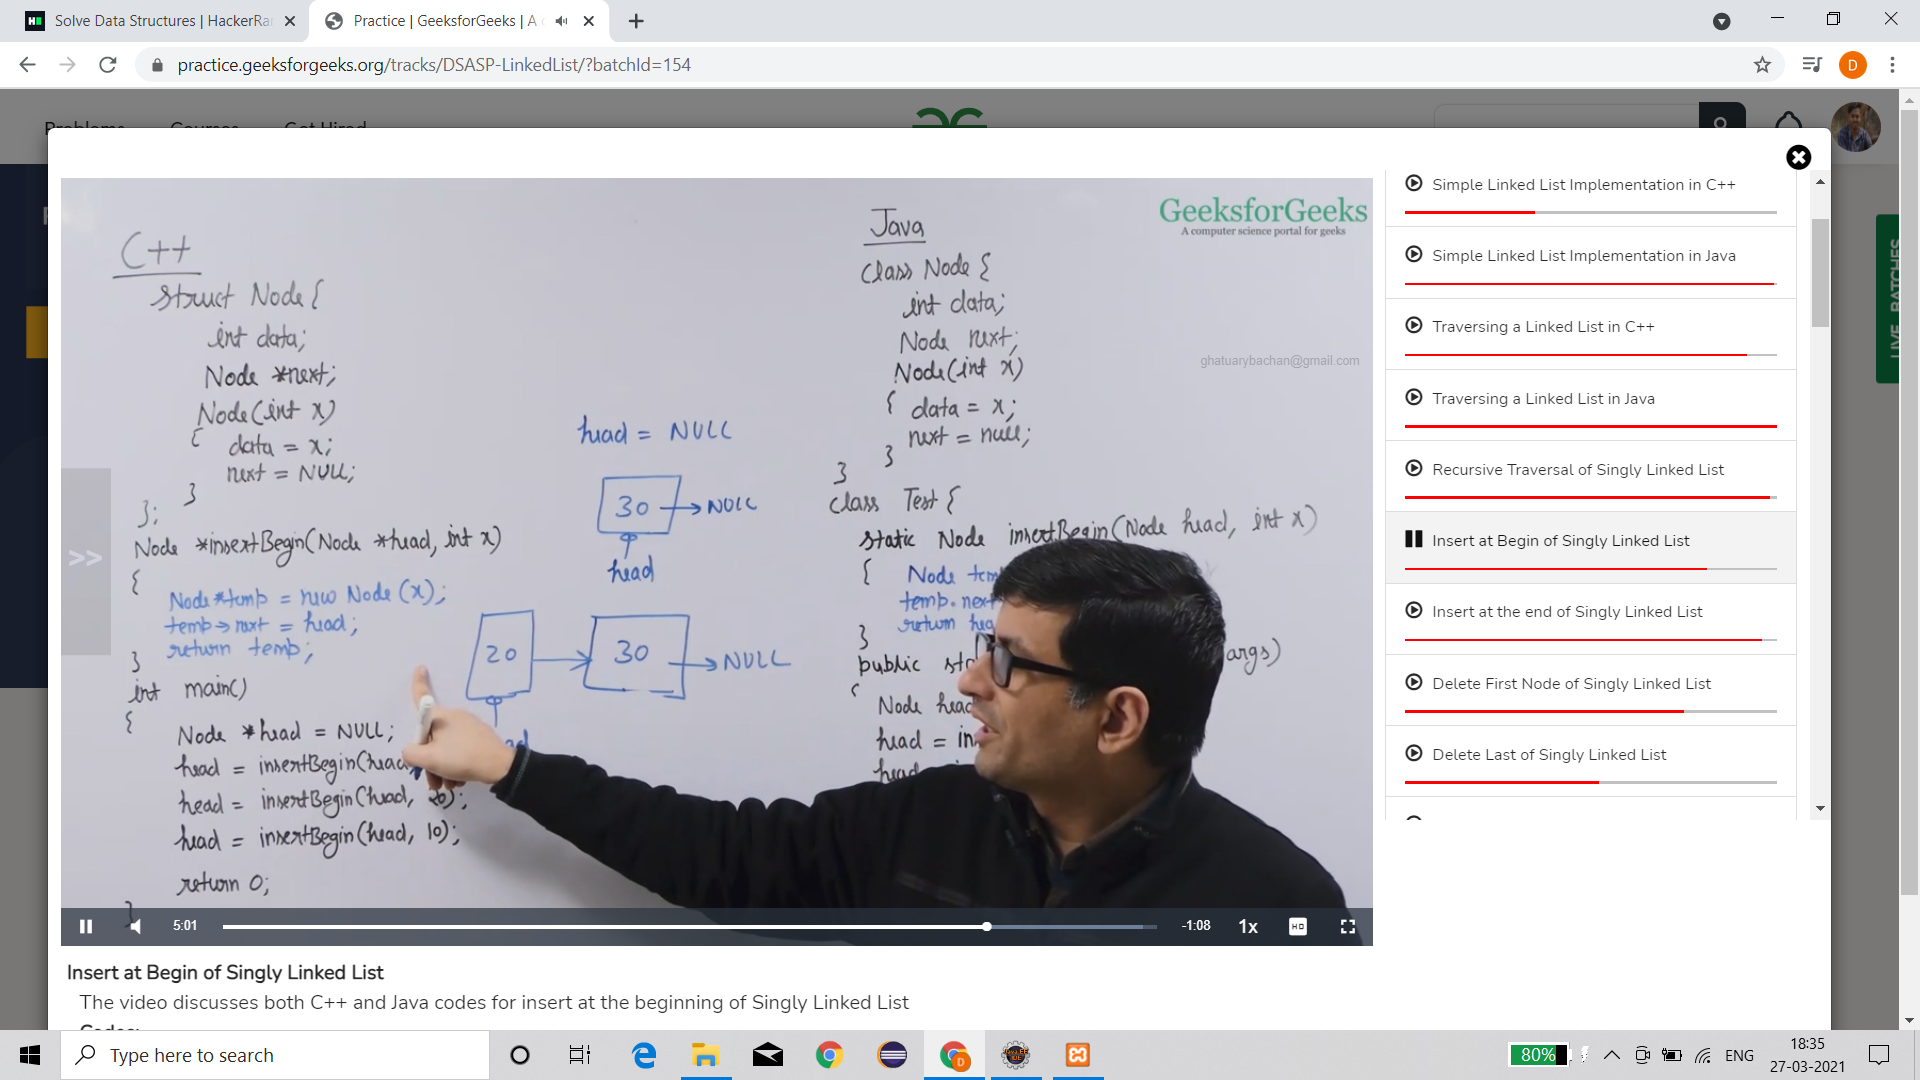 Solve Data Structures | HackerRa
Practice | GeeksforGeeks | A
practice.geeksforgeeks.org/tracks/DSASP-LinkedList/?batchId=154
D
Problems Courses Get Hired
LIVE BATCHES
GeeksforGeeks
A computer science portal for geeks
ghatuarybachan@gmail.com
C++
struct Node {
int data;
Node *next;
Node(int x)
{ data = x;
next = NULL;
}
};
Node *insertBegin(Node *head, int x)
{
Node *temp = new Node(x);
temp->next = head;
return temp;
}
int main()
{
Node *head = NULL;
head = insertBegin(head,
head = insertBegin(head, 20);
head = insertBegin(head, 10);
return 0;
}
head = NULL
30 NULL
head
20 30 NULL
Java
class Node {
int data;
Node next;
Node(int x)
{ data = x;
next = null;
}
}
class Test {
static Node insertBegin(Node head, int x)
{ Node tem
temp.next
return hea
}
public sta args)
{
Node head
head = in
head
>>
5:01
-1:08
1x
HD
Simple Linked List Implementation in C++
Simple Linked List Implementation in Java
Traversing a Linked List in C++
Traversing a Linked List in Java
Recursive Traversal of Singly Linked List
Insert at Begin of Singly Linked List
Insert at the end of Singly Linked List
Delete First Node of Singly Linked List
Delete Last of Singly Linked List
Insert at Begin of Singly Linked List
The video discusses both C++ and Java codes for insert at the beginning of Singly Linked List
Codes:
Type here to search
80%
ENG
18:35
27-03-2021